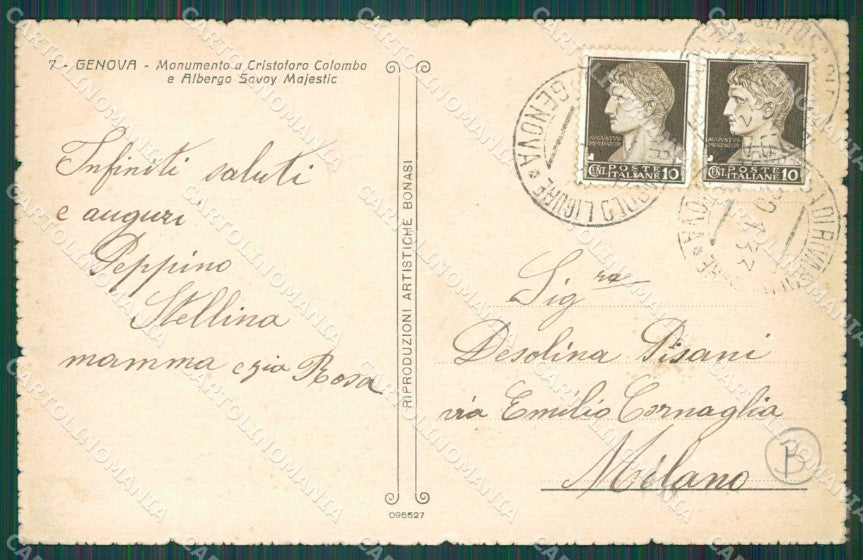 7 - GENOVA - Monumento a Cristoforo Colombo
e Albergo Savoy Majestic
Infiniti saluti
e auguri
Peppino
Stellina
mamma e zia Rosa
RIPRODUZIONI ARTISTICHE BONASI
095527
AUGUSTUS
IMPERATOR
POSTE
ITALIANE
CENT. 10
AUGUSTUS
IMPERATOR
POSTE
ITALIANE
CENT. 10
GENOVA
LIGURE
Sig.ra
Desolina Pisani
via Emilio Cornaglia
Milano
B
CARTOLINOMANIA